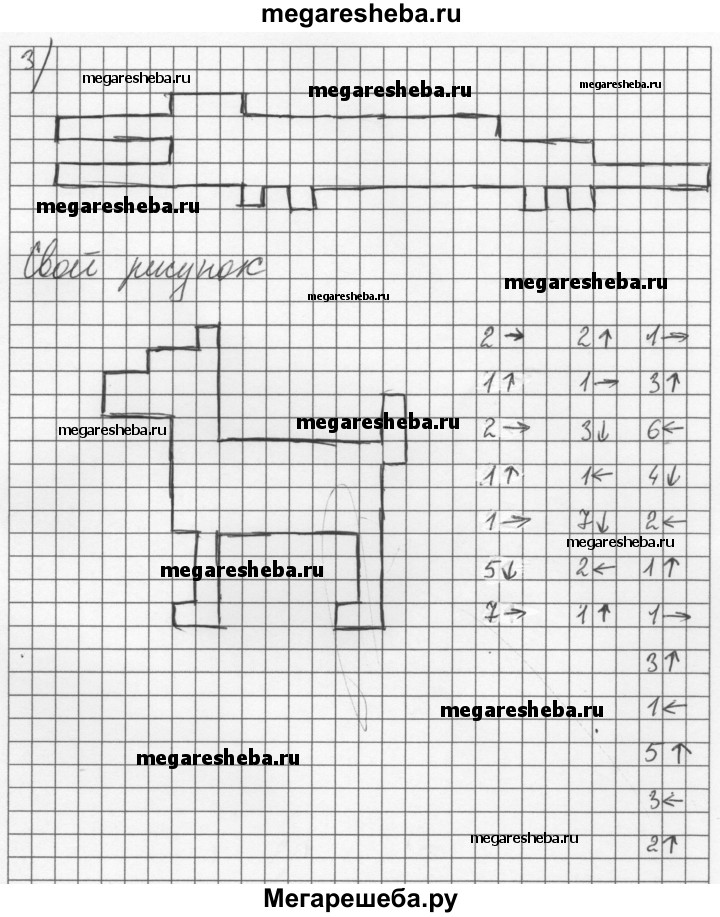 megaresheba.ru
3)
megaresheba.ru megaresheba.ru megaresheba.ru
megaresheba.ru
Свой рисунок
megaresheba.ru
megaresheba.ru
2 → 2 ↑ 1 →
1 ↑ 1 → 3 ↑
megaresheba.ru megaresheba.ru 2 → 3 ↓ 6 ←
1 ↑ 1 ← 4 ↓
1 → 7 ↓ 2 ←
megaresheba.ru
megaresheba.ru 5 ↓ 2 ← 1 ↑
7 → 1 ↑ 1 →
3 ↑
megaresheba.ru 1 ←
megaresheba.ru 5 ↑
3 ←
megaresheba.ru 2 ↑
Мегарешеба.ру